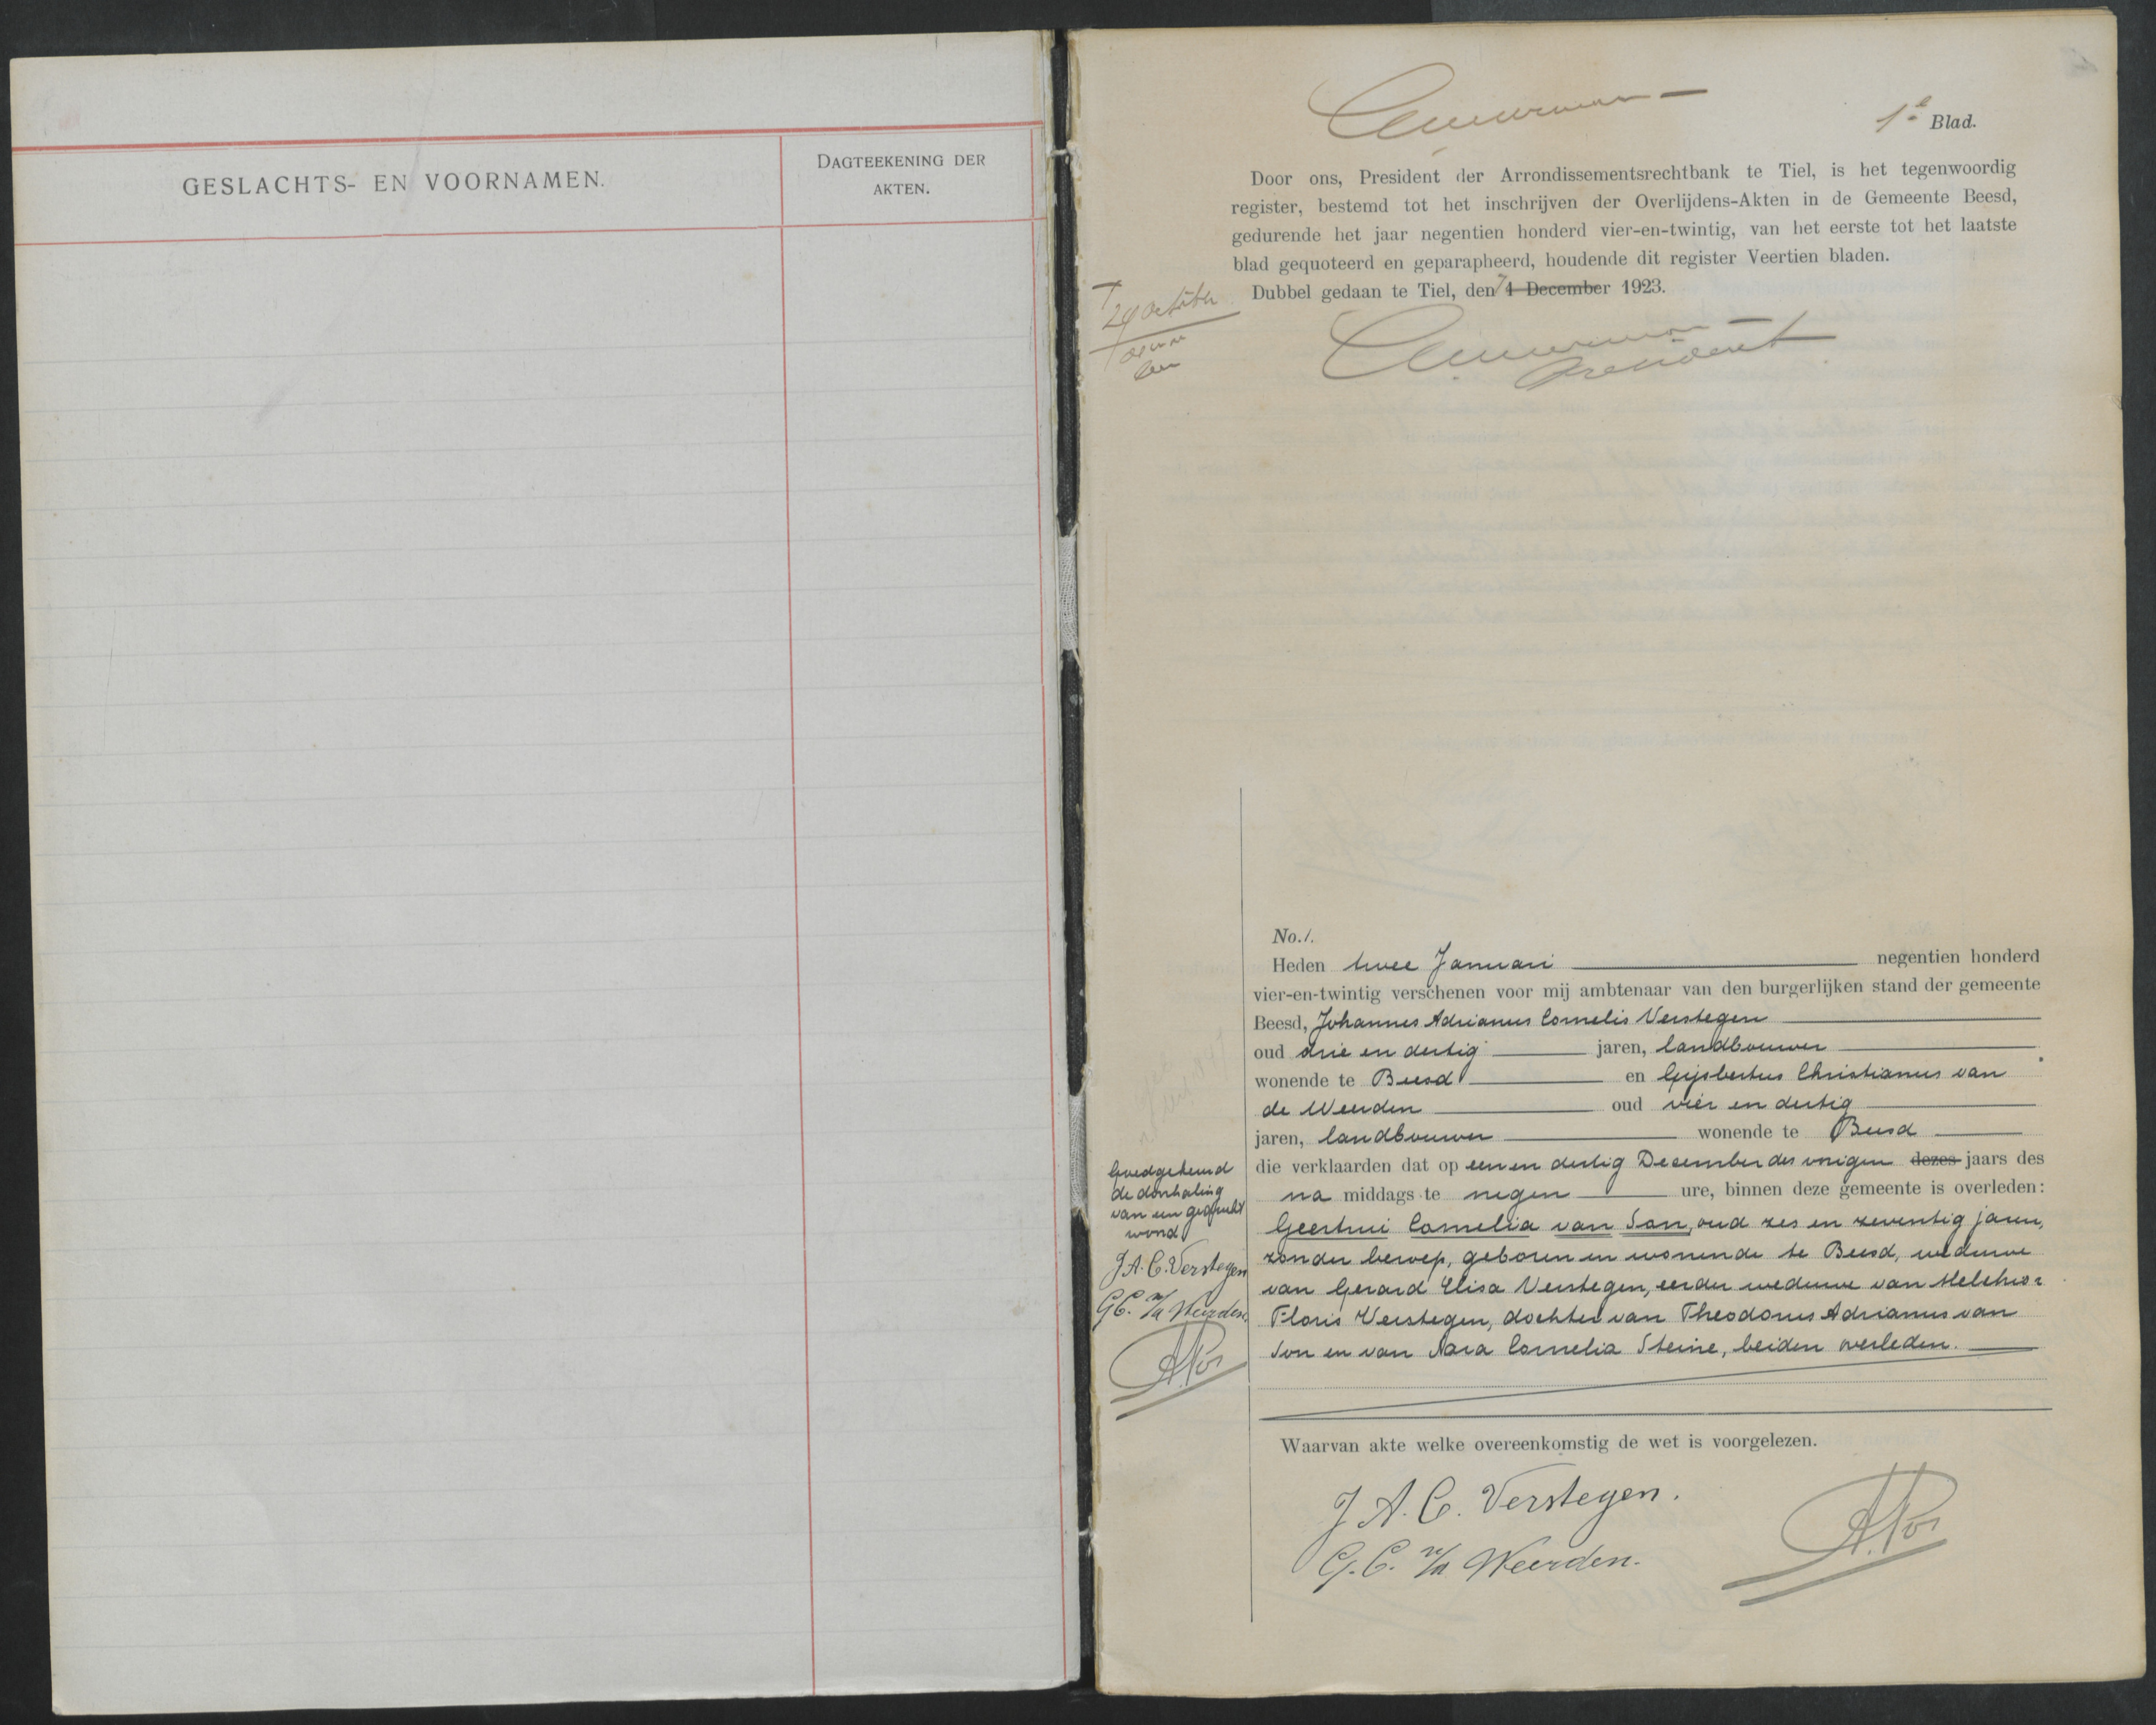 GESLACHTS- EN VOORNAMEN.
DAGTEEKENING DER
AKTEN.
1e Blad.
Door ons, President der Arrondissementsrechtbank te Tiel, is het tegenwoordig
register, bestemd tot het inschrijven der Overlijdens-Akten in de Gemeente Beesd,
gedurende het jaar negentien honderd vier-en-twintig, van het eerste tot het laatste
blad gequoteerd en geparapheerd, houdende dit register Veertien bladen.
Dubbel gedaan te Tiel, den 1 December 1923.
29 October
President
No. 1.
Heden twee Januari negentien honderd
vier-en-twintig verschenen voor mij ambtenaar van den burgerlijken stand der gemeente
Beesd, Johannes Adrianus Cornelis Verstegen
oud drie en dertig jaren, landbouwer
wonende te Beesd en Gijsbertus Christianus van
de Weerden oud vier en dertig
jaren, landbouwer wonende te Beesd
die verklaarden dat op een en dertig December des vorigen dezes jaars des
na middags te negen ure, binnen deze gemeente is overleden:
Geertrui Cornelia van Son, oud zes en zeventig jaren,
zonder beroep, geboren en wonende te Beesd, weduwe
van Gerard Elisa Verstegen, eerder weduwe van Melchior
Floris Verstegen, dochter van Theodorus Adrianus van
Son en van Cornelia Steine, beiden overleden.
Goedgekeurd
de doorhaling
van een gedrukt
woord
J.A.C. Verstegen
G.C. v/d Weerden.
Waarvan akte welke overeenkomstig de wet is voorgelezen.
J. A. C. Verstegen.
G. C. v/d Weerden.